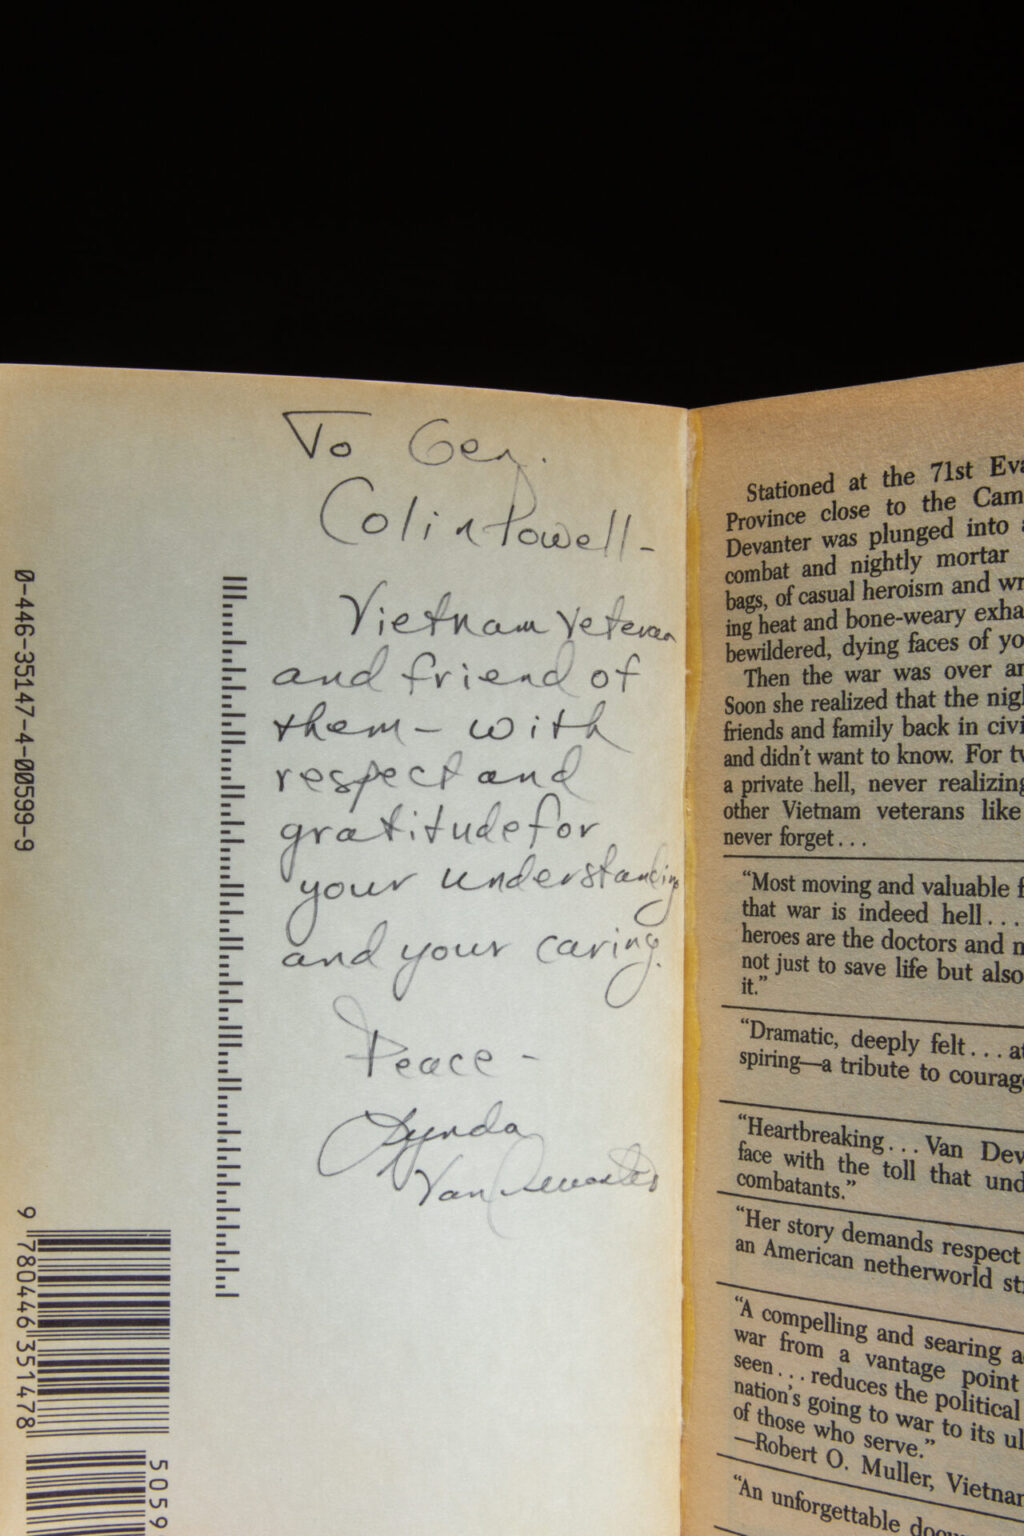 To Gen.
Colin Powell-
Vietnam Veteran
and friend of
them - with
respect and
gratitude for
your understanding
and your caring.
Peace -
Lynda
Van Devanter
0-446-35147-4-00599-9
9 780446 351478
5059
Stationed at the 71st Eva
Province close to the Cam
Devanter was plunged into a
combat and nightly mortar
bags, of casual heroism and wr
ing heat and bone-weary exha
bewildered, dying faces of yo
Then the war was over an
Soon she realized that the nigh
friends and family back in civi
and didn't want to know. For tw
a private hell, never realizing
other Vietnam veterans like
never forget...
"Most moving and valuable f
that war is indeed hell...
heroes are the doctors and n
not just to save life but also
it."
"Dramatic, deeply felt...at
spiring—a tribute to courage
"Heartbreaking...Van Dev
face with the toll that und
combatants."
"Her story demands respect
an American netherworld st
"A compelling and searing a
war from a vantage point
seen...reduces the political
nation's going to war to its ul
of those who serve."
—Robert O. Muller, Vietnam
"An unforgettable docu